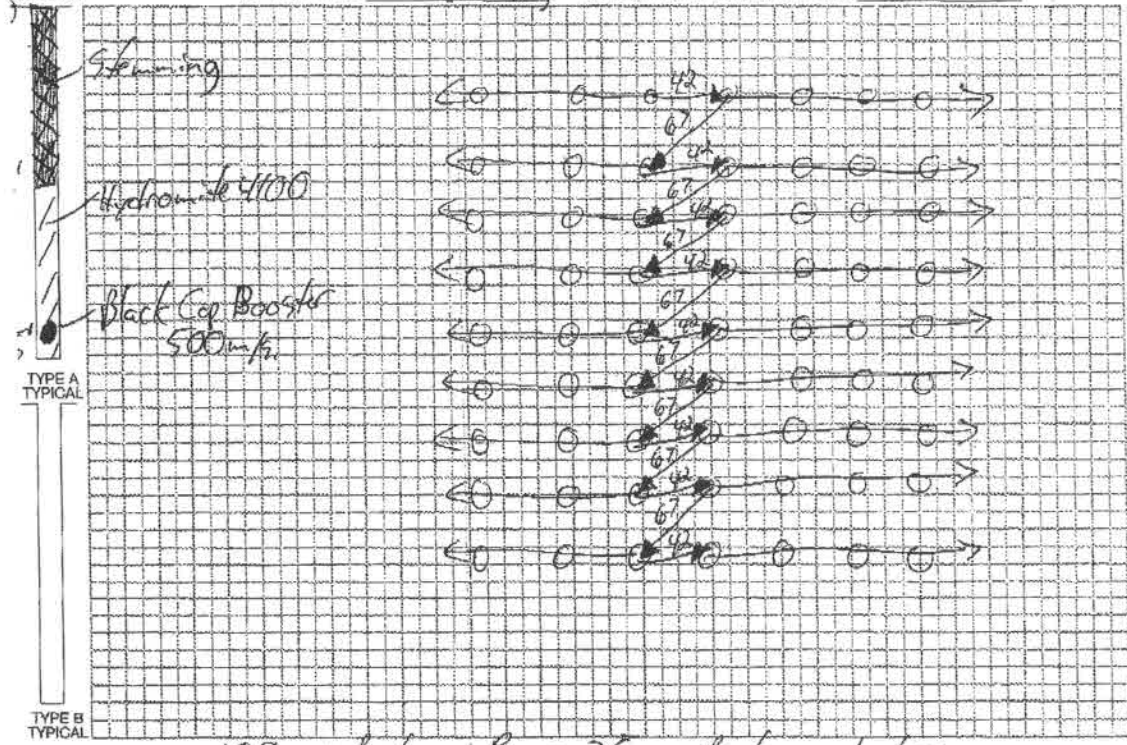 Stemming
Hydromite 4100
Black Cap Booster
500 m/s
TYPE A
TYPICAL
TYPE B
TYPICAL
42
67
42
67
42
67
42
67
42
67
42
67
42
67
42
67
42